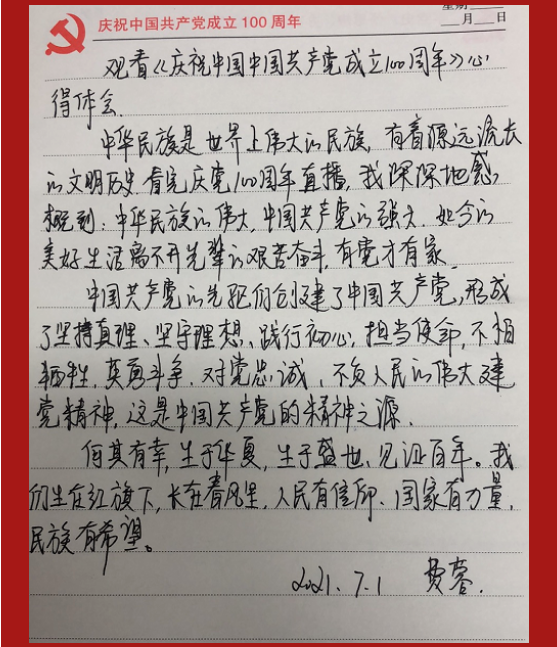 庆祝中国共产党成立100周年
星期
月 日
观看《庆祝中国中国共产党成立100周年》心
得体会.
中华民族是世界上伟大的民族,有着源远流长
的文明历史.看完庆党100周年直播,我深深地感
慨到:中华民族的伟大,中国共产党的强大.如今的
美好生活离不开先辈的艰苦奋斗,有党才有家.
中国共产党的先驱们创建了中国共产党,形成
了坚持真理、坚守理想、践行初心,担当使命,不怕
牺牲,英勇斗争.对党忠诚、不负人民的伟大建
党精神,这是中国共产党的精神之源.
何其有幸,生于华夏,生于盛世、见证百年。我
们生在红旗下,长在春风里,人民有信仰、国家有力量,
民族有希望。
2021.7.1 费蓉.